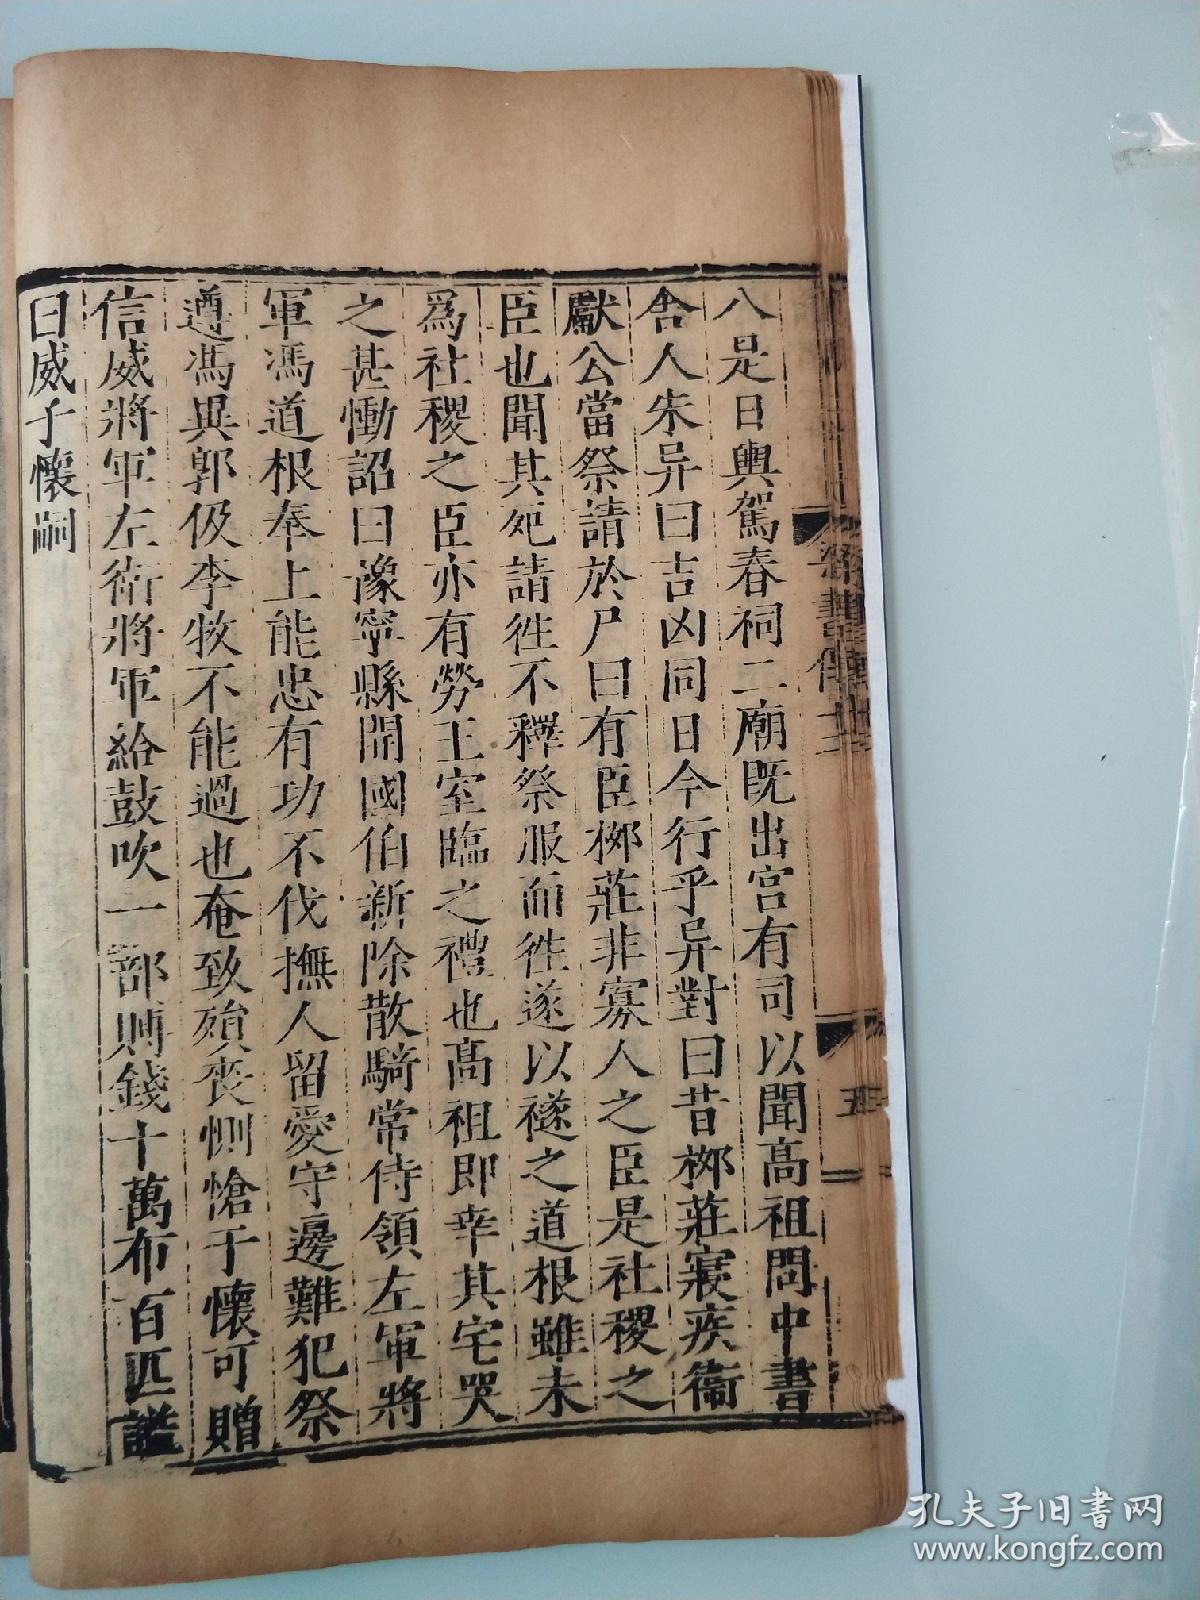 八是日輿駕春祠二廟既出宫有司以聞高祖問中書
舎人朱异曰吉凶同日今行乎异對曰昔栁莊寢疾衞
獻公當祭請於尸曰有臣栁莊非寡人之臣是社稷之
臣也聞其死請徃不釋祭服而徃遂以襚之道根雖未
爲社稷之臣亦有勞王室臨之禮也高祖即幸其宅哭
之甚慟詔曰豫寧縣開國伯新除散騎常侍領左軍將
軍馮道根奉上能忠有功不伐撫人留愛守邊難犯祭
遵馮異郭伋李牧不能過也奄致殞喪惻愴于懷可贈
信威將軍左衛將軍給鼓吹一部賻錢十萬布百匹諡
曰威子懷嗣
梁書傳十二
五
孔夫子旧书网
www.kongfz.com